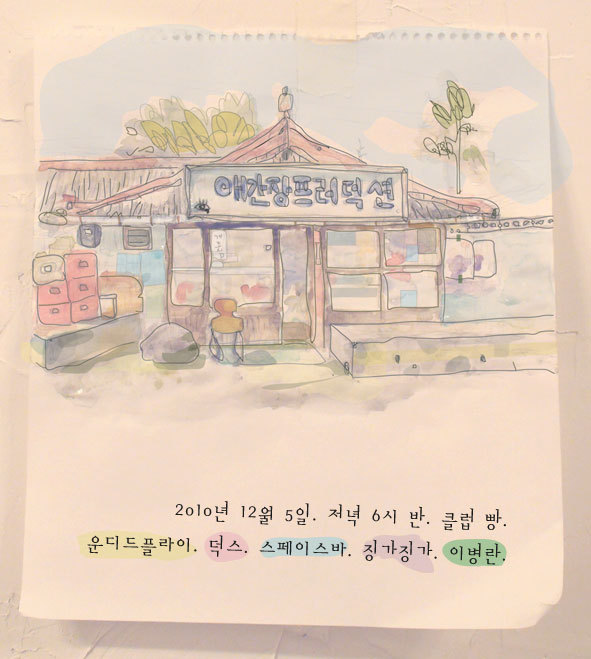 애간장프러덕션
2010년 12월 5일. 저녁 6시 반. 클럽 빵.
운디드플라이. 덕스. 스페이스바. 징가징가. 이병란.